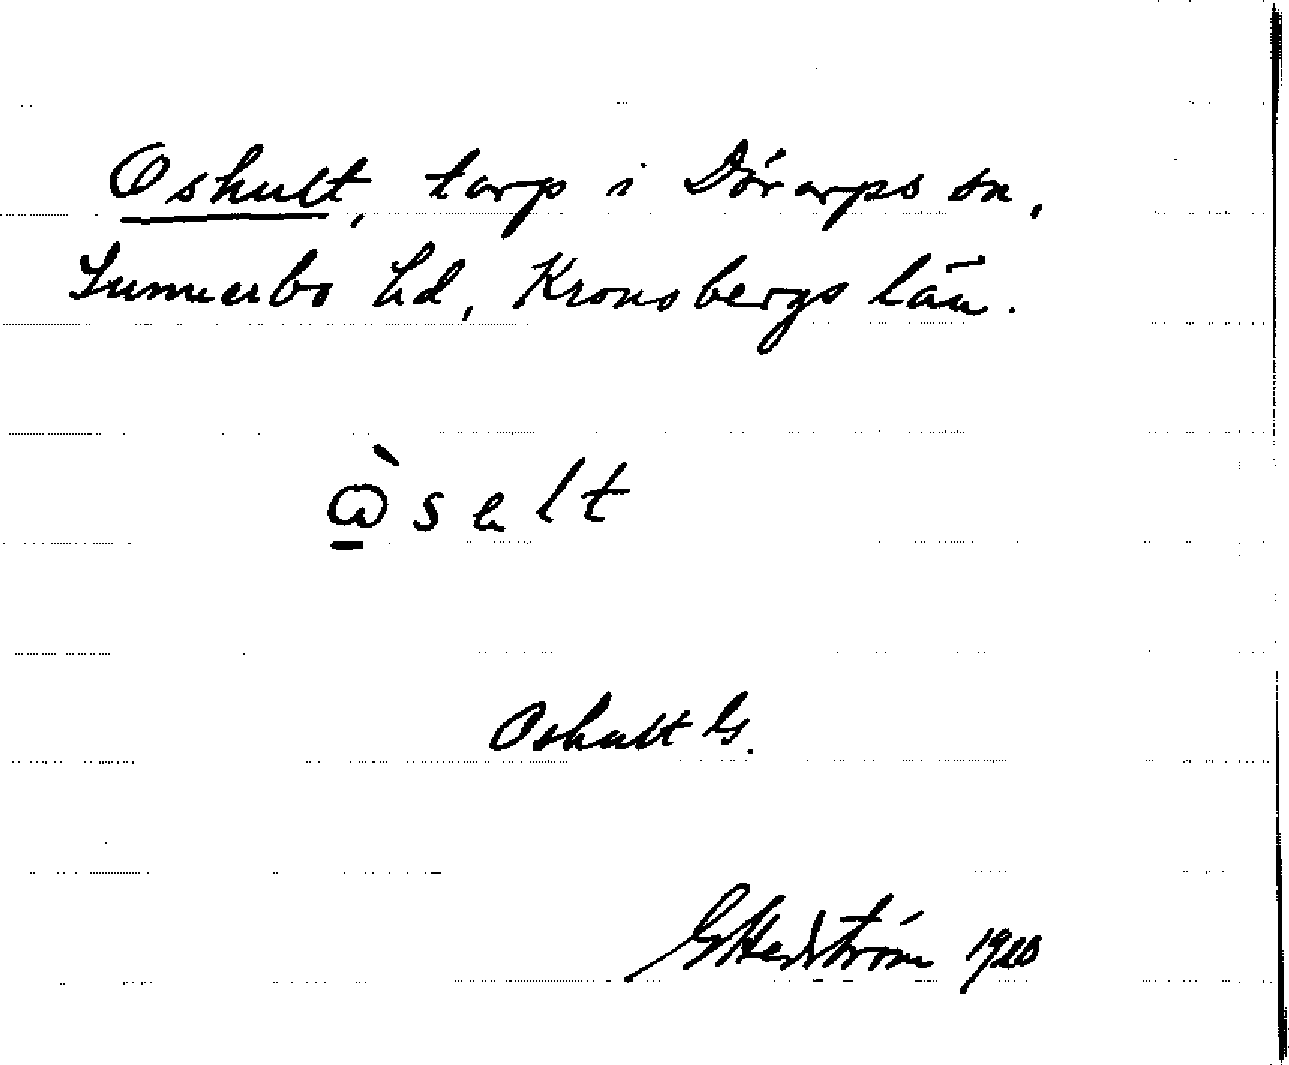 Oshult, torp i Dörarps sn,
Sunnerbo hd, Kronobergs län.
Oshult G.
G Hedström 1920